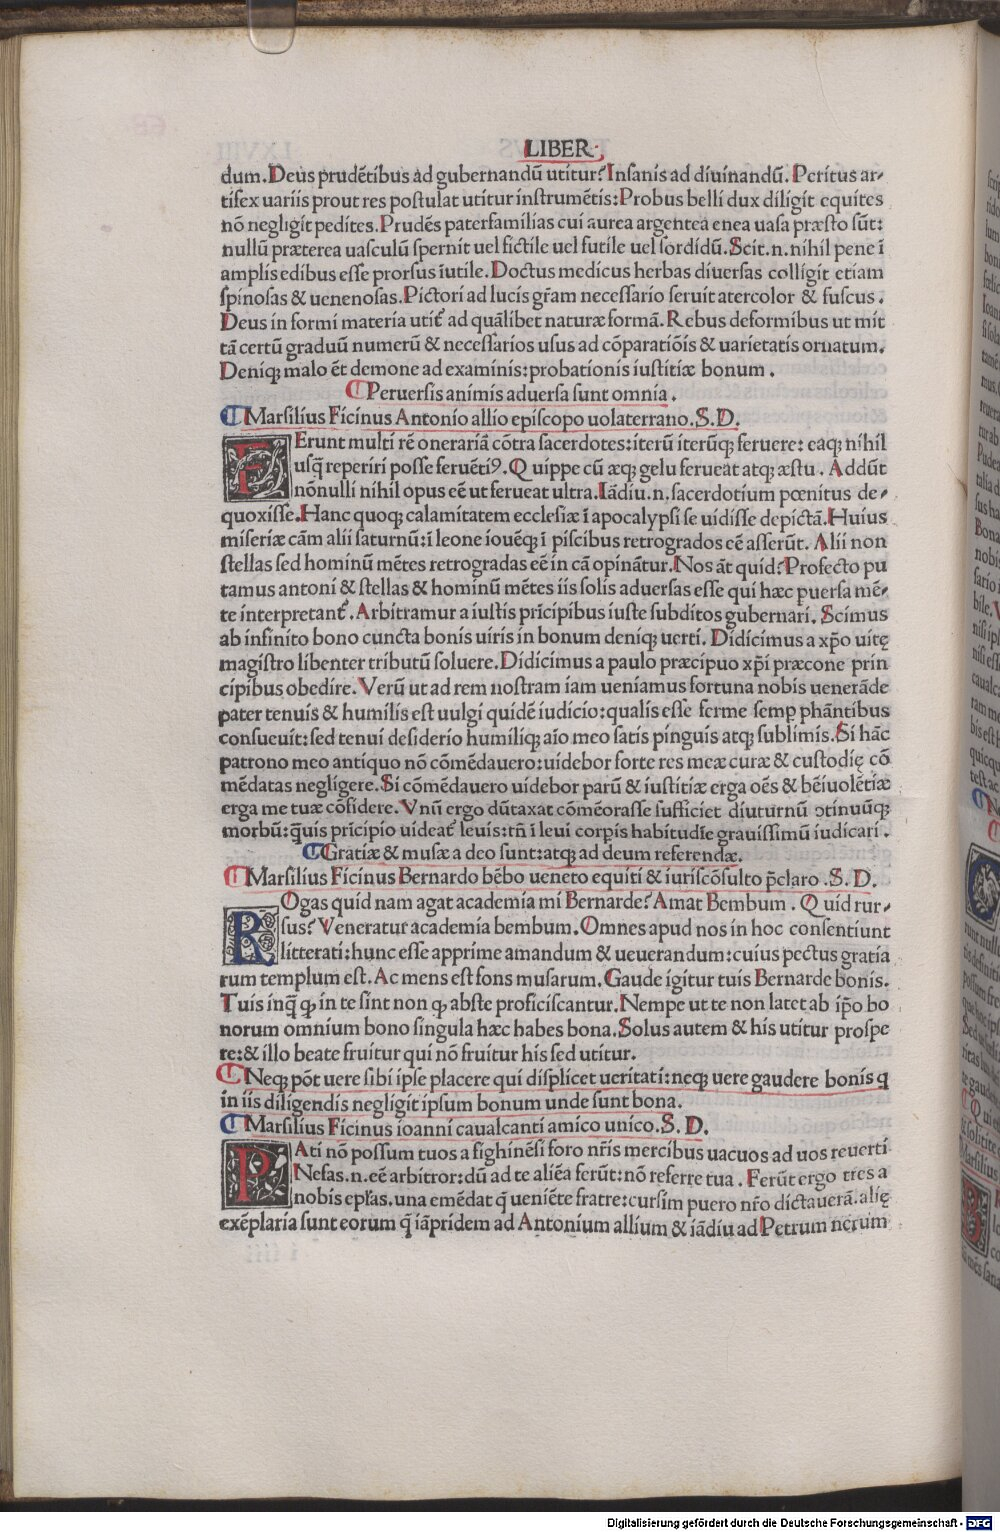 LIBER
dum. Deus prudētibus ad gubernandū utitur? Insanis ad diuinandū. Peritus ar-
tifex uariis prout res postulat utitur instrumētis: Probus belli dux diligit equites
nō negligit pedites. Prudēs paterfamilias cui aurea argentea enea uasa præsto sūt:
nullū præterea uasculū spernit uel fictile uel futile uel sordidū. Scit.n.nihil pene ī
amplis edibus esse prorsus īutile. Doctus medicus herbas diuersas colligit etiam
spinosas & uenenosas. Pictori ad lucis grām necessario seruit atercolor & fuscus.
Deus in formi materia utit̄ ad quālibet naturæ formā. Rebus deformibus ut mit
tā certū graduū numerū & necessarios usus ad cōparatiōis & uarietatis ornatum.
Deniqȝ malo ēt demone ad examinis: probationis iustitiæ bonum.
Peruersis animis aduersa sunt omnia.
Marsilius Ficinus Antonio allio episcopo uolaterrano. S. D.
FErunt multi rē onerariā cōtra sacerdotes: iterū iterūqȝ feruere: eaqȝ nihil
usq̄ reperiri posse feruētiꝰ. Quippe cū æqȝ gelu ferueat atqȝ æstu. Addūt
nōnulli nihil opus eē ut ferueat ultra. Iādiu.n.sacerdotium pœnitus de-
quoxisse. Hanc quoqȝ calamitatem ecclesiæ ī apocalypsi se uidisse depictā. Huius
miseriæ cām alii saturnū: ī leone iouēqȝ ī piscibus retrogrados eē asserūt. Alii non
stellas sed hominū mētes retrogradas eē in cā opinātur. Nos āt quid? Profecto pu
tamus antoni & stellas & hominū mētes iis solis aduersas esse qui hæc puersa mē-
te interpretant̄. Arbitramur a iustis prīcipibus iuste subditos gubernari. Scimus
ab infinito bono cuncta bonis uiris in bonum deniqȝ uerti. Didicimus a xp̄o uitę
magistro libenter tributū soluere. Didicimus a paulo præcipuo xp̄i præcone prin
cipibus obedire. Verū ut ad rem nostram iam ueniamus fortuna nobis uenerāde
pater tenuis & humilis est uulgi quidē iudicio: qualis esse ferme semp̱ phāntibus
consueuit: sed tenui desiderio humiliqȝ aīo meo satis pinguis atqȝ sublimis. Si hāc
patrono meo antiquo nō cōmēdauero: uidebor forte res meæ curæ & custodię cō
mēdatas negligere. Si cōmēdauero uidebor parū & iustitiæ erga oēs & bēiuolētiæ
erga me tuæ cōfidere. Vnū ergo dūtaxat cōmēorasse sufficiet diuturnū ↄtinuūqȝ
morbū: q̄uis prīcipio uideat̄ leuis: tn̄ ī leui corp̱is habitudīe grauissimū iudicari.
Gratiæ & musæ a deo sunt: atqȝ ad deum referendæ.
Marsilius Ficinus Bernardo bēbo ueneto equiti & iuriscōsulto p̄claro. S. D.
ROgas quid nam agat academia mi Bernarde? Amat Bembum. Quid rur-
sus? Veneratur academia bembum. Omnes apud nos in hoc consentiunt
litterati: hunc esse apprime amandum & ueuerandum: cuius pectus gratia
rum templum est. Ac mens est fons musarum. Gaude igitur tuis Bernarde bonis.
Tuis inq̄ ꝙ in te sint non ꝙ abste proficiscantur. Nempe ut te non latet ab ip̄o bo
norum omnium bono singula hæc habes bona. Solus autem & his utitur prospe
re: & illo beate fruitur qui nō fruitur his sed utitur.
Neqȝ pōt uere sibi ipse placere qui displicet ueritati: neqȝ uere gaudere bonis q
in iis diligendis negligit ipsum bonum unde sunt bona.
Marsilius Ficinus ioanni caualcanti amico unico. S. D.
PAti nō possum tuos a fighinēsi foro nr̄is mercibus uacuos ad uos reuerti
Nefas.n.eē arbitror: dū ad te aliēa ferūt: nō referre tua. Ferūt ergo tres a
nobis epl̄as. una emēdat q̄ ueniēte fratre: cursim puero nr̄o dictauerā. alię
exēplaria sunt eorum q̄ iāpridem ad Antonium allium & iādiu ad Petrum nerum
Digitalisierung gefördert durch die Deutsche Forschungsgemeinschaft - DFG